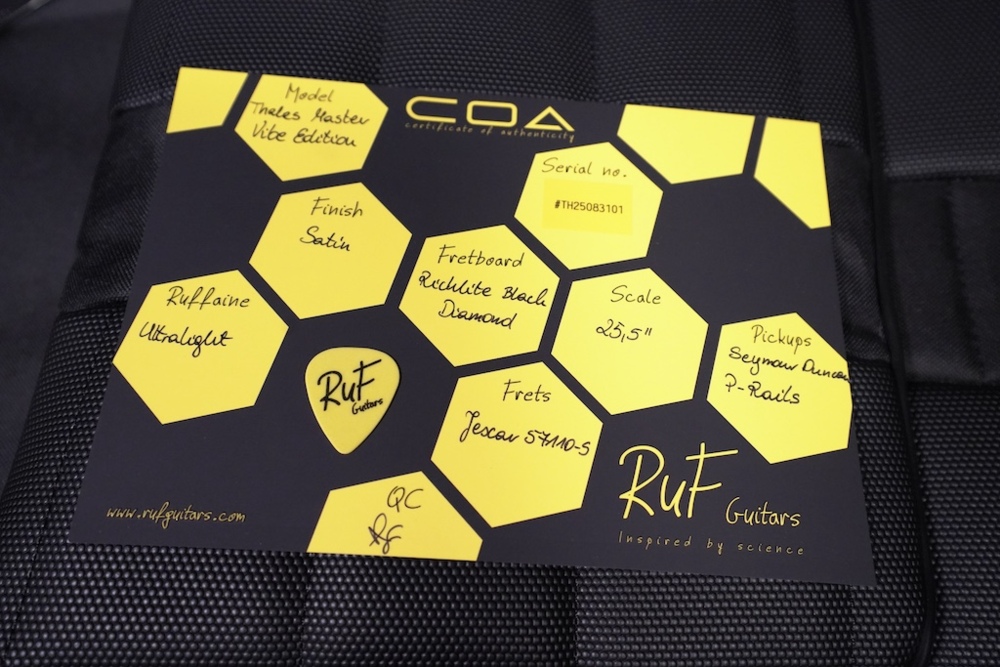 Model
Thales Master
Vibe Edition
COA
certificate of authenticity
Serial no.
#TH25083101
Finish
Satin
Fretboard
Richlite Black
Diamond
Scale
25,5"
Ruffaine
Ultralight
Pickups
Seymour Duncan
P-Rails
RuF
Guitars
Frets
Jescar 57110-S
QC
www.rufguitars.com
RuF Guitars
Inspired by science